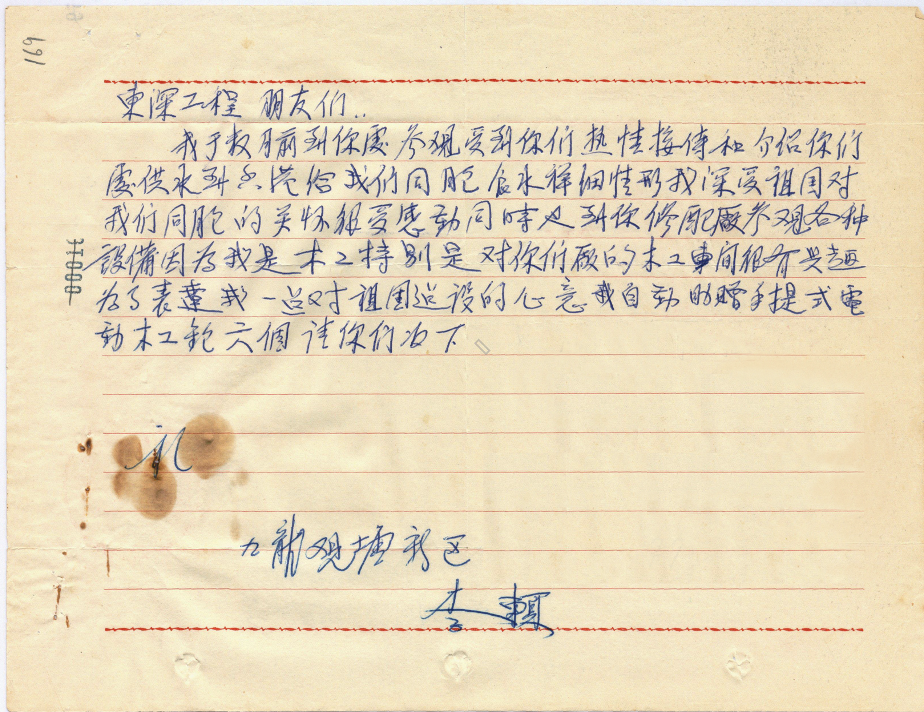 169
東深工程 朋友们..
我于数月前到你處参观受到你们热情接待和介绍你们
處供水到香港给我们同胞食水祥细情形我深受祖国对
我们同胞的关怀很受感動同時也到你修配廠参观各种
設備因為我是木工特别是对你们廠的木工車间很有兴趣
為了表達我一点对祖国建设的心意我自动助赠手提式電
動木工鉋六個请你们收下
礼
九龍观塘新区
李